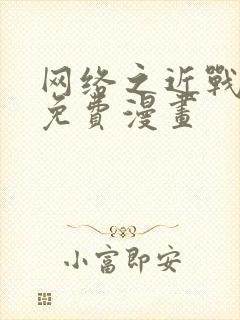 网络之近戰
免費漫畫
小富即安